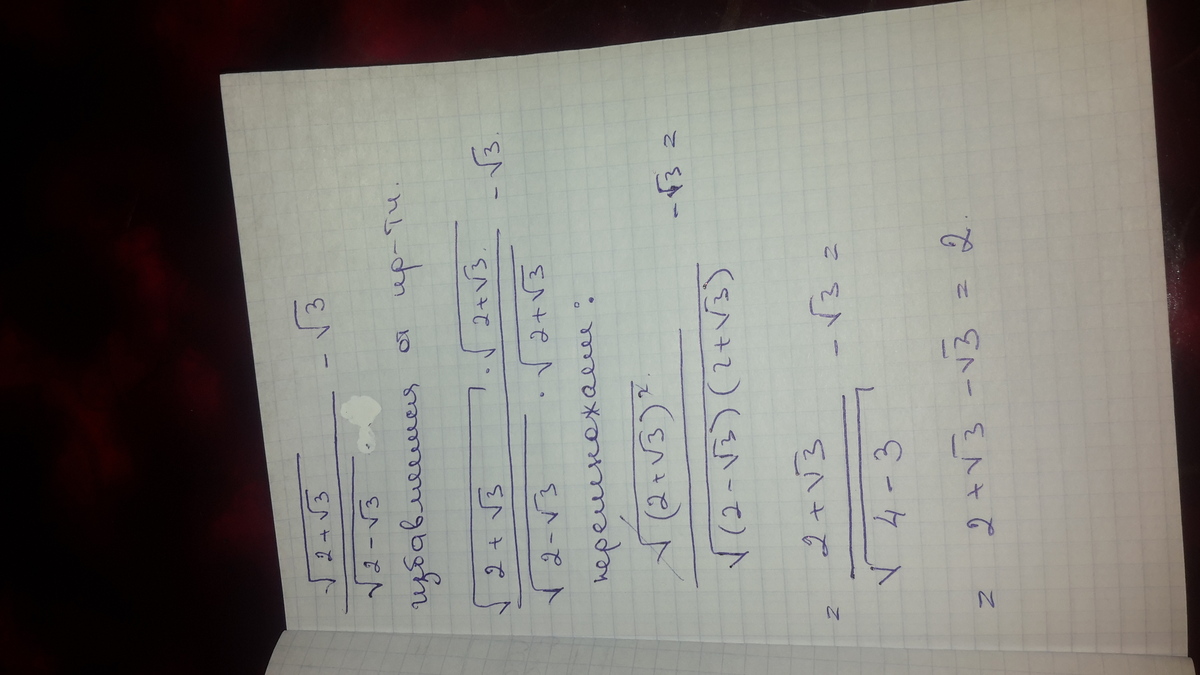 √(2+√3) / √(2-√3) - √3
избавляемся от ир-ти.
√(2+√3) · √(2+√3) / √(2-√3) · √(2+√3) - √3.
перемножаем:
√(2+√3)² / √(2-√3)(2+√3) - √3 =
= 2+√3 / √4-3 - √3 =
= 2+√3 - √3 = 2.